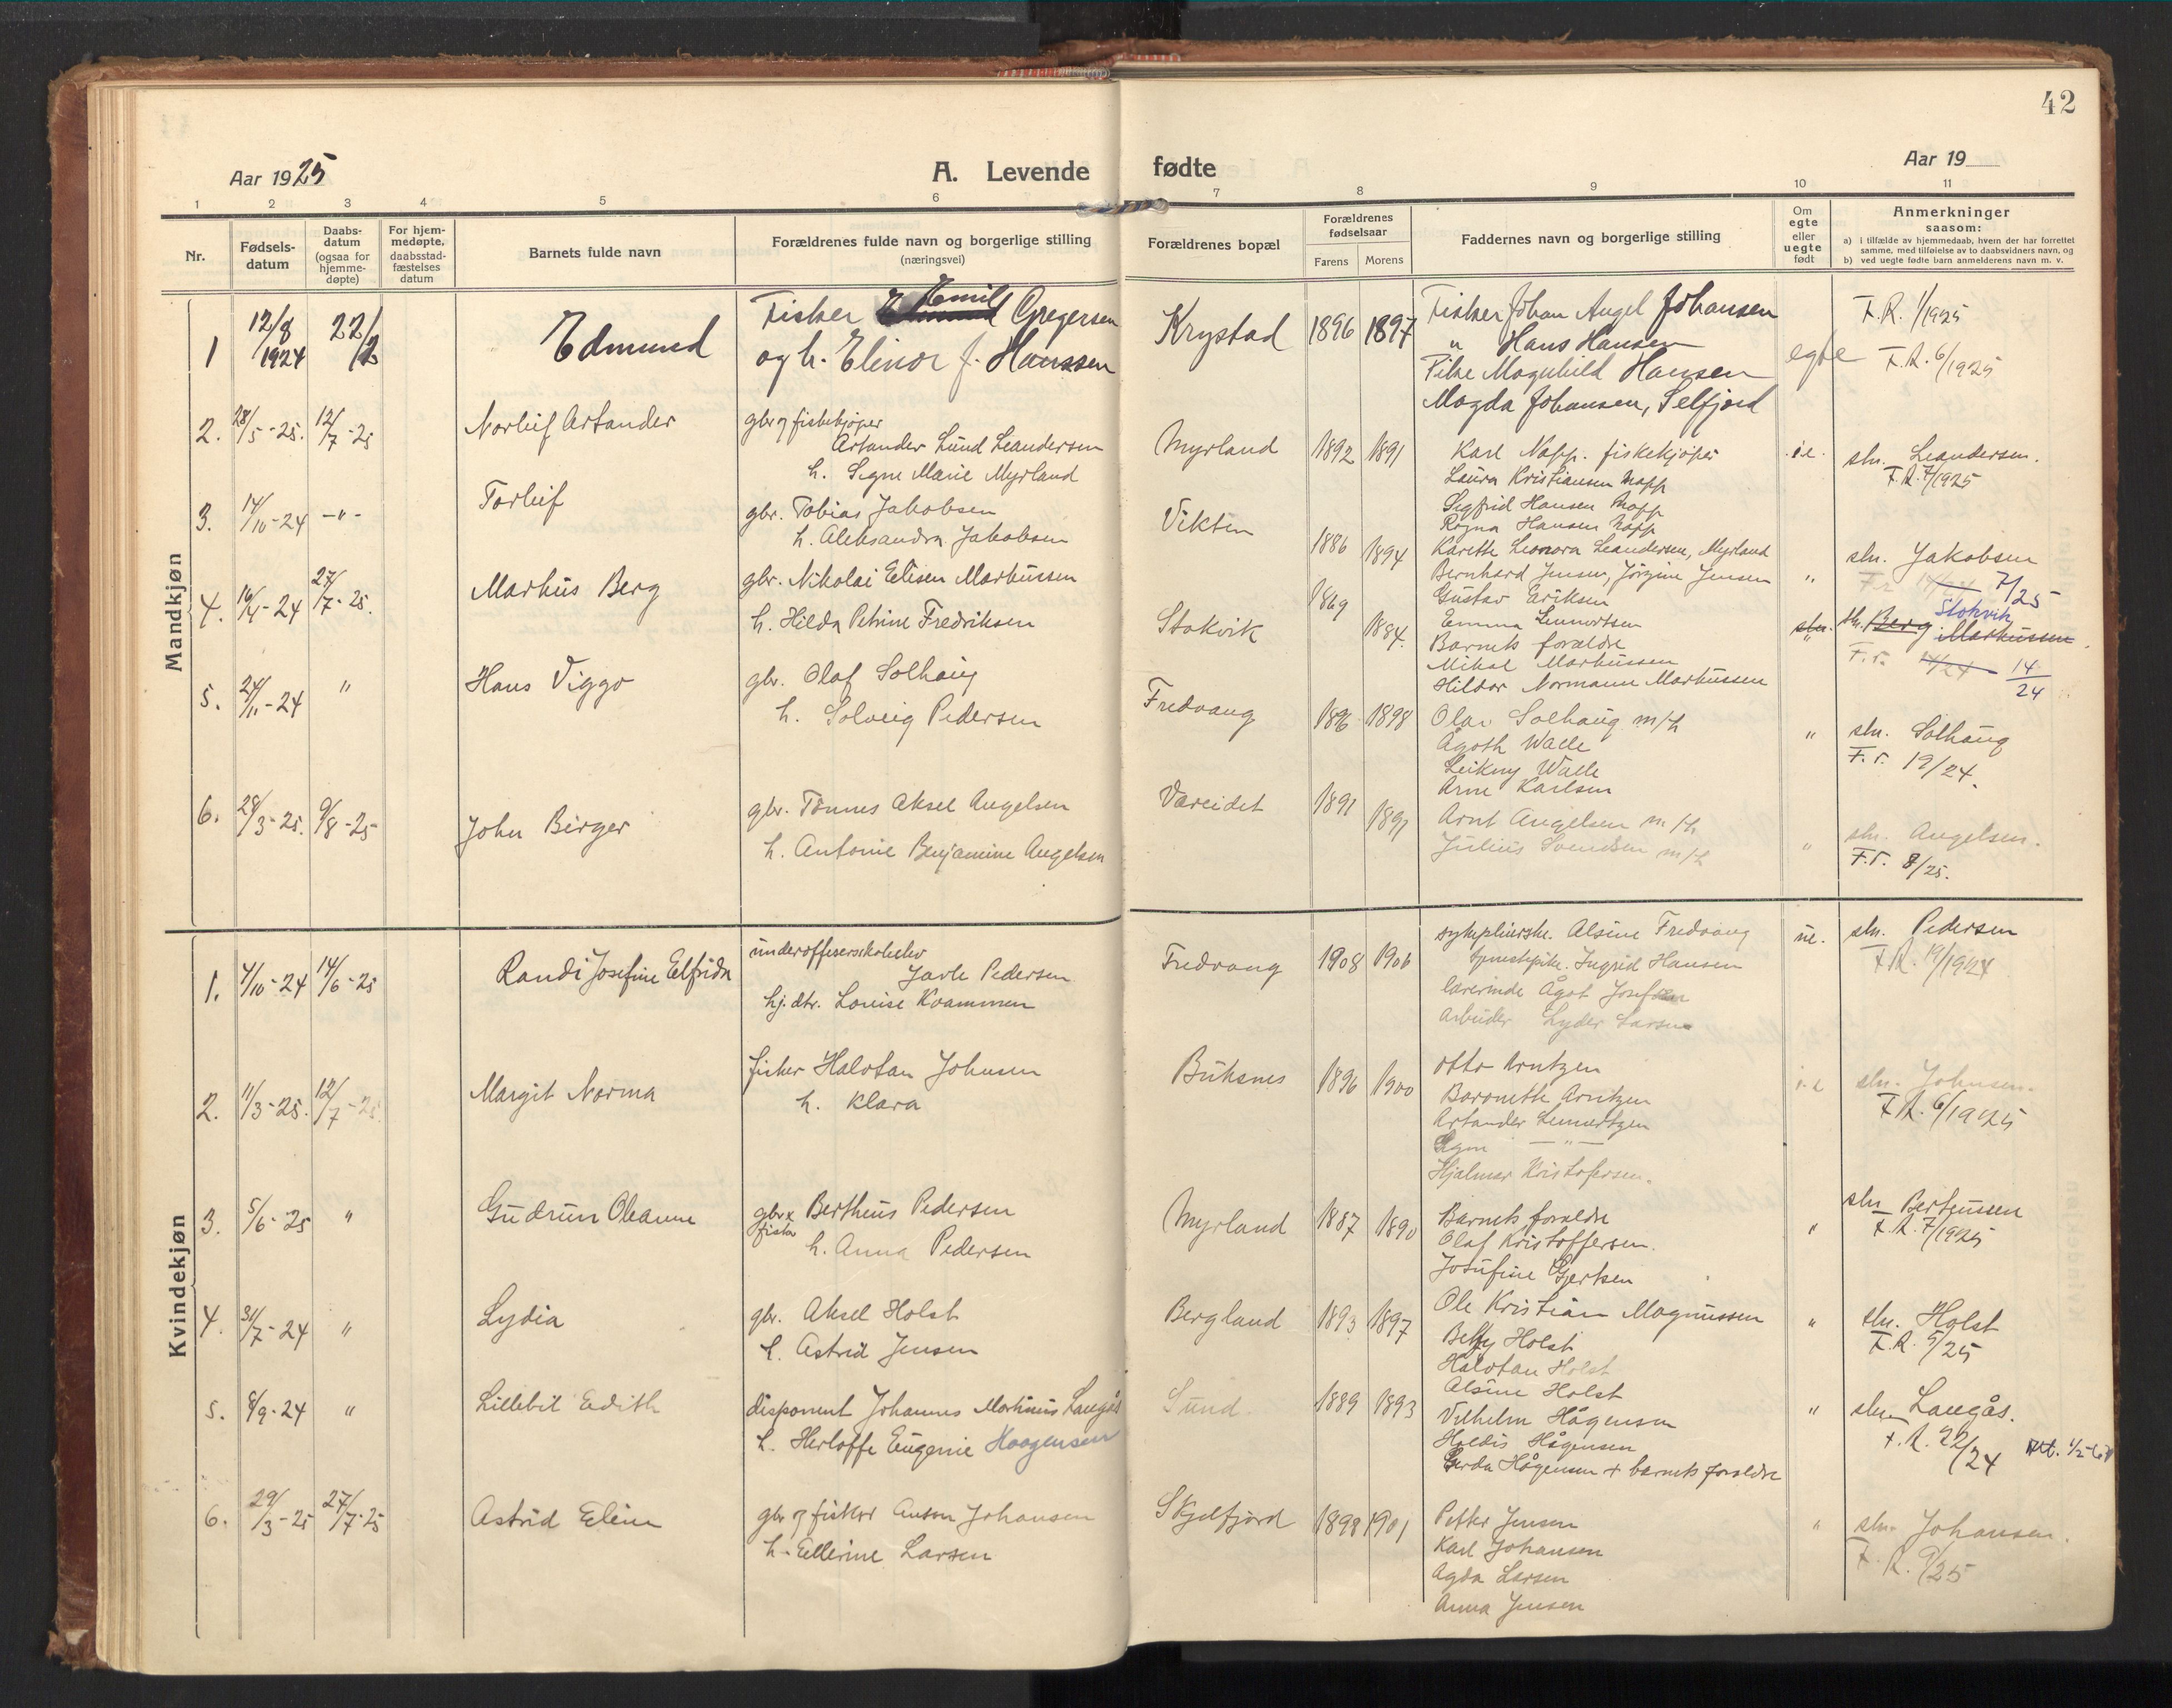 42
Aar 1925
A. Levende fødte
Aar 19
1 2 3 4 5 6 7 8 9 10 11
Nr.
Fødsels-
datum
Daabs-
datum
(ogsaa for
hjemme-
døpte)
For hjem-
medøpte,
daabsstad-
fæstelses
datum
Barnets fulde navn
Forældrenes fulde navn og borgerlige stilling
(næringsvei)
Forældrenes bopæl
Forældrenes
fødselsaar
Farens Morens
Faddernes navn og borgerlige stilling
Om
egte
eller
uegte
født
Anmerkninger
saasom:
a) i tilfælde av hjemmedaab, hvem der har forrettet
samme, med tilføielse av to daabsvidners navn, og
b) ved uegte fødte barn anmelderens navn m. v.
Mandkjøn
1 12/8 1924 22/2 Edmund
Fisker Emil Gregersen
og h. Elinor f. Hanssen
Krystad 1896 1897
Fisker Johan Angel Johansen
" Hans Hansen
Pike Magnhild Hansen
Magda Johansen, Selfjord
egte
F.R. 1/1925
F.R. 6/1925
2. 28/5-25. 12/7-25 Norleif Artander
gbr og fiskekjøper
Artander Lund Leandersen
h. Signe Marie Myrland
Myrland 1892 1891
Karl Napp. fiskekjøper
Laura Kristiansen Napp
Sigfrid Hansen Napp
Ragna Hansen Napp
Karette Leonora Leandersen, Myrland
i.e.
sln. Leandersen.
F.R. 7/1925
3. 14/10-24 -"- Torleif
gbr. Tobias Jakobsen
h. Aleksandra Jakobsen
Vikten 1886 1894
Bernhard Jensen, Jørgine Jensen
Gustav Eriksen
Emma Lennertsen
"
sln. Jakobsen
7/25
4. 16/4-24 27/7-25. Markus Berg
gbr. Nikolai Elisen Markussen
h. Hilda Petrine Fredriksen
Stokvik 1869 1884.
Barnets forældre
Mikal Markussen
Hildor Normann Markussen
"
sln. Berg Markussen
Stokvik
F.r. 14/24 14/24
5. 24/11-24 " Hans Viggo
gbr. Olaf Solhaug
h. Solveig Pedersen
Fredvang 1896 1898
Olav Solhaug m/h
Agoth Walle
Leikny Walle
Arne Karlsen
"
sln. Solhaug
F.r. 19/24.
6. 28/3-25. 9/8-25 John Birger
gbr. Tønnes Aksel Angelsen
h. Antonie Benjamine Angelsen
Vareidet 1891 1891
Arnt Angelsen m/h
Julius Svendsen m/h
"
sln. Angelsen.
F.r. 8/25.
Kvindekjøn
1. 7/10-24 14/6-25 Randi Josefine Elfrida
underoffisersskoleelev
Jarle Pedersen
hj. dtr. Louise Kvammen
Fredvang 1908 1906
sykepleierske. Alsine Fredvang
tjenestepike. Ingrid Hansen
lærerinde Ågot Josefsen
Arbeider Lyder Larsen
ue.
sln. Pedersen
F.R. 19/1924
2. 11/3-25. 12/7-25 Margit Norma
fisker Halvtan Johnsen
h. Klara
Buksnes 1896 1900
Otto Arntzen
Baronette Arntzen
Artander Lennertzen
Signe -"-
Hjalmar Kristofersen.
i.e
sln. Johnsen.
F.R. 6/1925
3. 5/6-25 " Gudrun Oleanne
gbr x fisker Bertheus Pedersen
h. Anna Pedersen
Myrland 1887 1890
Barnets forældre
Olaf Kristoffersen.
Josefine Gjertsen
"
sln Berteussen
F.R. 7/1925
4. 31/7-24 " Lydia
gbr. Aksel Holst
h. Astrid Jensen
Bergland 1893 1897
Ole Kristian Magnussen
Betsy Holst
Halvtan Holst
Alsine Holst
"
sln. Holst
F.R. 5/25
5. 8/9-24 " Lillebil Edith
disponent Johannes Martinius Langås
h. Herloffe Eugenie Haagensen
Sund. 1889 1893
Vilhelm Hågensen
Haldis Hågensen
Gerda Hågensen + barnets forældre
"
sln Langås.
F.R. 22/24
6. 29/3-25 27/7-25 Astrid Eline
gbr og fisker Anton Johansen
h. Ellerine Larsen
Skjelfjord 1898 1901
Petter Jensen
Karl Johansen
Agda Larsen
Anna Jensen
"
sln. Johansen.
F.R. 9/25